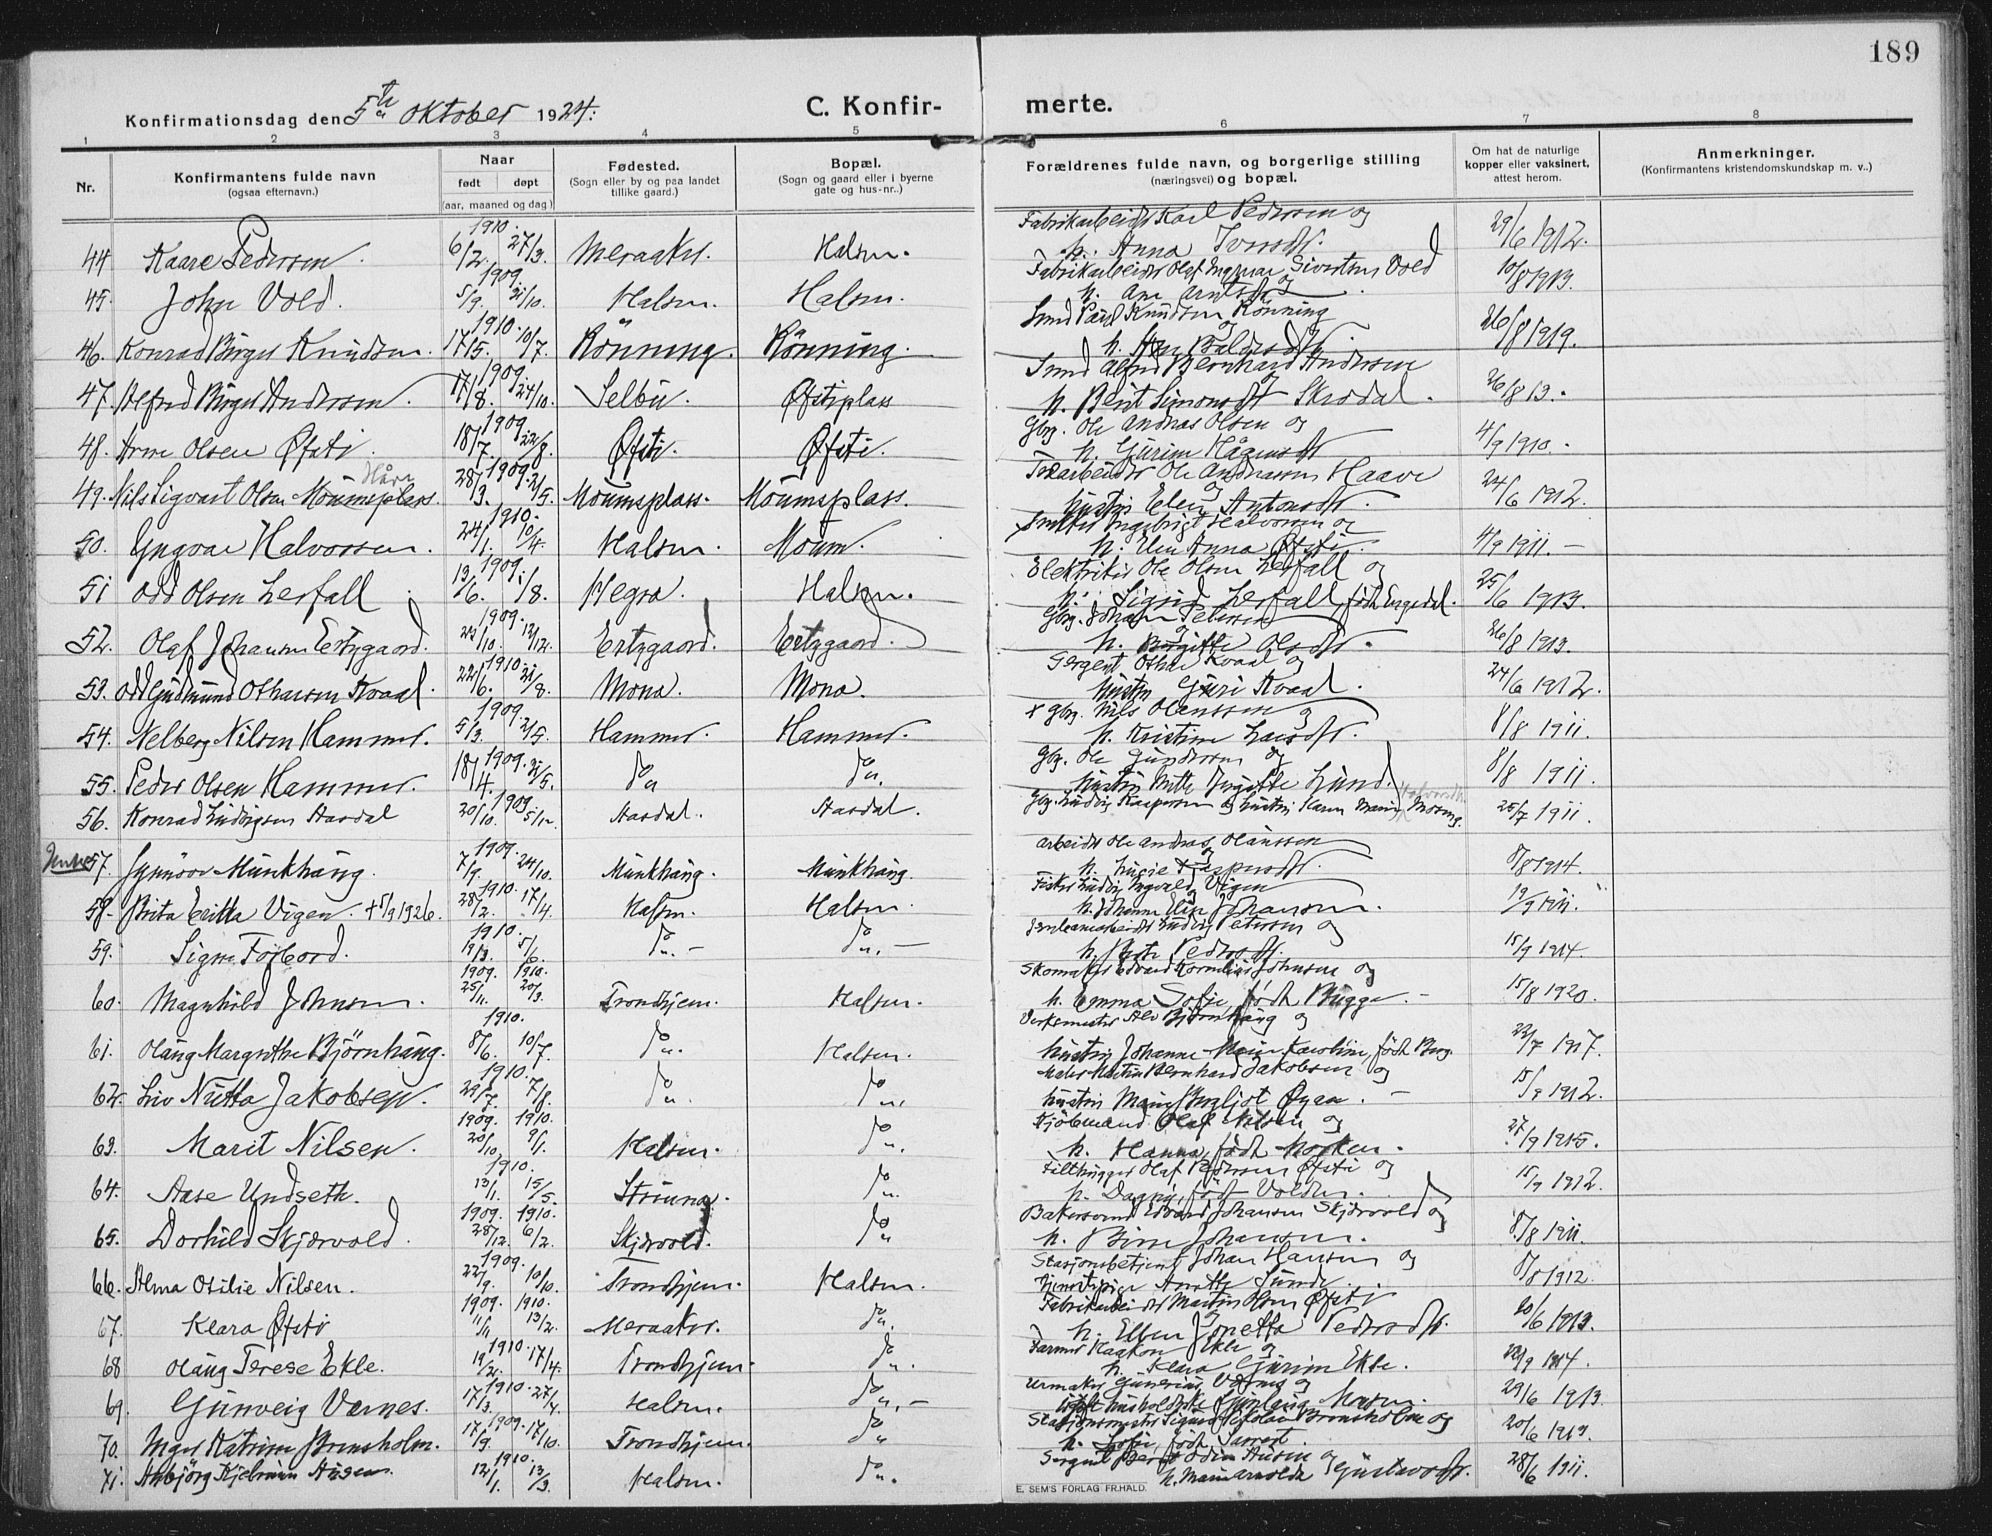 189
Konfirmationsdag den 5te oktober 1924.
C. Konfir-
merte.
1 2 3 4 5 6 7 8
Nr.
Konfirmantens fulde navn
(ogsaa efternavn.)
Naar
født døpt
(aar, maaned og dag)
Fødested.
(Sogn eller by og paa landet
tillike gaard.)
Bopæl.
(Sogn og gaard eller i byerne
gate og hus-nr..)
Forældrenes fulde navn, og borgerlige stilling
(næringsvei) og bopæl.
Om hat de naturlige
kopper eller vaksinert,
attest herom.
Anmerkninger.
(Konfirmantens kristendomskundskap m. v..)
44 Kaare Pedersen. 1910. 6/2. 27/3. Meraaker. Halsen. Fabrikarbeider Karl Pedersen og h. Anna 29/6 1912.
45. John Vold. 1909. 5/9. 31/10. Halsen. Halsen. Fabrikarbeider Olaf Ingmar Sivertsen Vold og h. 10/8 1913.
46. Konrad Birger Knudsen. 1910. 17/5. 10/7. Rönning. Rönning. Smed Paul Knudsen Rönning og h. 26/8 1919.
47. Alfred Birger Andersen. 1909. 17/8. 24/10. Selbu. Øfstiplass Smed Alfred Bernhard Andersen og h. Berit Simonsdtr Skrødal. 26/8 13.
48. Arne Olsen Øfsti. 1909. 18/7. 22/8. Øfsti. Øfsti. Gbr. Ole Andreas Olsen og h. Gurine 4/9 1910.
49. Nils Sigvart Olsen Moumsplass. 1909. 28/3. 2/5. Moumsplass. Moumsplass. Ole Andreassen Haave og hustru Elen Antonsdtr. 24/6 1912.
50. Yngvar Halvorsen. 1910. 24/1. 10/4. Halsen. Moum. Ingebrigt Halvorsen og h. Elen Anna Øfsti. 4/9 1911.
51 Odd Olsen Lerfall 1909. 13/6. 1/8. Hegra. Halsen. Elektriker Ole Olsen Lerfall og h. Sigrid Lerfall, født Engedal. 25/6 1913.
52. Olaf Johansen Ertzgaard. 1909. 22/10. 12/12. Ertzgaard. Ertzgaard. Gbr. Johan Petersen og h. Birgitte Olsdtr. 26/8 1913.
53. Odd Gudmund Otharsen Kvaal. 1910. 22/6. 21/8. Mona. Mona. Sergent Othar Kvaal og hustru Guri Kvaal. 24/6 1912.
54. Nelberg Nilsen Hammer. 1909. 5/3. 2/5. Hammer. Hammer. + Gbr. Nils Olaussen og h. Kristine Larsdtr. 8/8 1911.
55. Peder Olsen Hammer. 1909. 18/4. 31/5. do do. Gbr. Ole Gundersen og hustru Mette Birgitte Lund. 8/8 1911.
56. Konrad Ludvigsen Aasdal 1909. 20/10. 5/12. Aasdal. Aasdal. Gbr. Ludvig Kaspersen og hustru Karen Marie 25/7 1911.
57. Synnöve Munkhaug. 1909. 7/9. 24/10. Munkhaug. Munkhaug. Arbeider Ole Andreas Olaussen og h. Lucie Kaspersdtr. 8/8 1914.
58. Brita Eritta Vigen. + 5/9 1926. 1910. 28/2. 17/4. Halsen. Halsen. Fisker Ludvig Ingvald Vigen og h. Johanne Elise Johansen. 12/9 1911.
59. Signe Fosbord. 1910. 19/3. 5/6. do. - do. - Jernbanearbeider Ludvig Petersen og h. Marte Pedersdtr. 15/9 1914.
60. Magnhild Johnsen. 1909. 1910. 25/11. 20/3. Trondhjem. Halsen. Skomaker Edvard Kornelius Johnsen og h. Emma Sofie, født Bugge. 15/8 1920.
61. Olaug Margrethe Bjørnhaug. 1910. 8/6. 10/7. do. Halsen. Verksmester Alv Bjørnhaug og hustru Johanne Marie Karoline, født Berg. 22/7 1917.
62. Liv Nutta Jakobsen. 1910. 29/5. 7/8. do. do. Maler Martin Bernhard Jakobsen og hustru Marie Bergljot Øyan. 15/9 1912.
63. Marit Nilsen. 1909. 1910. 20/10 9/1. Halsen. do. Kjöbmand Olaf Nilsen og h. Hanna, født Morken. 27/9 1915.
64. Aase Undseth. 1910. 13/1. 15/5. Strinna. do. Filthugger Olaf Pedersen Øfsti og h. Dagny, født Volden. 15/9 1912.
65. Dorhild Skjervold. 1909. 1910. 28/12. 6/2. Skjervold. do Bakersvend Edvard Johansen Skjervold og h. Johansen. 8/8 1911.
66. Alma Otilie Nilsen. 1909. 22/9. 10/10. Trondhjem. Halsen. Stasjonsbetjent Johan Hansen og tjenestepige Anette Sunde. 8/8 1912.
67. Klara Øfsti 1909. 1910. 11/11. 13/2. Meraaker. do. Fabrikarbeider Martin Olsen Øfsti og h. Ellen Jonetta Pedersdtr. 20/6 1913.
68 Olaug Terese Ekle. 1910. 19/2. 17/4. Trondhjem. do. Farmer Haakon Ekle og h. Klara Gurine Ekle. 22/9 1914.
69. Gunveig Værnes. 1910. 17/3. 27/4. Halsen. do. - Urmaker Gunerius Værnes og Gunlaug 29/6 1913.
70. Inger Katrine Bremsholm. 1909. 17/9. 17/10. Trondhjem. do Stasjonsmester Sigurd Nikolai Bremsholm og h. Sofie, født 20/6 1913.
71. Asbjörg Kjelrun Ausen. 1910. 12/1. 13/3. Halsen. do. Sergeant Odin Ausen og h. Marie Arnolda Gustavsdtr. 28/6 1911.
E. SEM'S FORLAG FR.HALD.